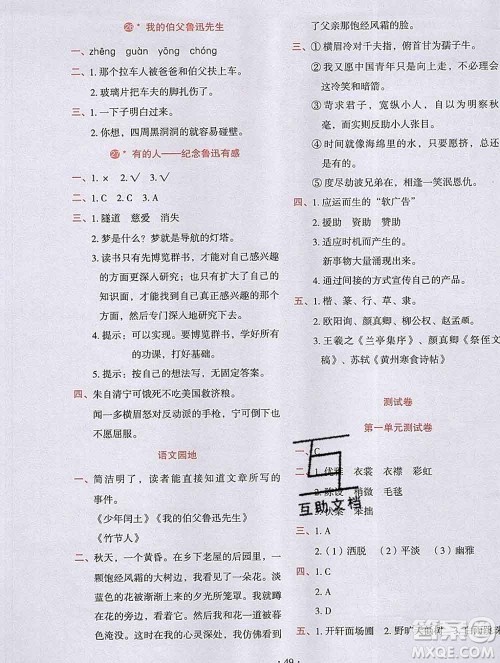 26*我的伯父鲁迅先生
一、zhēng guàn yōng chóng
二、1. 那个拉车人被爸爸和伯父扶上车。
2. 玻璃片把车夫的脚扎伤了。
三、1. 一下子明白过来。
2. 你想，四周黑洞洞的，还不容易碰壁。
27*有的人——纪念鲁迅有感
一、1. × 2. √ 3. √
二、1. C 2. C 3. A
三、1. 隧道 慈爱 消失
2. 梦是什么？梦就是导航的灯塔。
3. 读书只有先博览群书，才能对自己感兴趣
的方面更深入研究；也只有扩大了自己的
知识面，才能找到自己真正感兴趣的方面，
然后专门深入地研究下去。
4. 提示：可以实现。要博览群书，学好所有
的功课，打好基础。
5. 提示：按自己的想法写，无固定答案。
四、朱自清宁可饿死不吃美国救济粮。
闻一多横眉怒对反动派的手枪，宁可倒下，也不
愿屈服。
语文园地
一、简洁明了，读者能直接知道文章所写的
事件。
《少年闰土》《我的伯父鲁迅先生》
《竹节人》
二、秋天，一个黄昏。在乡下老屋的后园里，一
颗饱经风霜的大树边，我看见了一朵花。淡
蓝色的花被渐渐上来的夕光所笼罩。我久久
地站在花的旁边，看着美丽的花在暮
色中淹没。这时我的心灵深处，仿佛
了父亲那饱经风霜的脸。
三、①横眉冷对千夫指，俯首甘为孺子牛。
②我又愿中国青年只是向上走，不必理会
这冷笑和暗箭。
③苛求君子，宽纵小人，自以为明察秋
毫，而实则反助小人张目。
④时间就像海绵里的水，只要愿挤，总还
是有的。
⑤度尽劫波兄弟在，相逢一笑泯恩仇。
四、1. 应运而生的“软广告”
2. 援助 资助 赞助
3. 适应时机而产生的。
新事物大量涌现出来。
4. 通过间接的方式宣传自己的产品。
五、1. 楷、篆、行、草、隶。
2. 欧阳询、颜真卿、柳公权、赵孟頫。
3. 王羲之《兰亭集序》、颜真卿《祭侄文
稿》、苏轼《黄州寒食诗帖》
测试卷
第一单元测试卷
一、C
二、1. 优雅 衣裳 衣襟 彩虹
2. 陈设 稍微 毛毯
3. 伏案 笨拙
三、1. A 2.（1）洒脱（2）平淡（3）幽雅
四、1. C 2. A 3. C
五、1. 开轩面场圃 2. 野旷天低树
· 49 ·
互助文档
答案圈
MXQE.COM